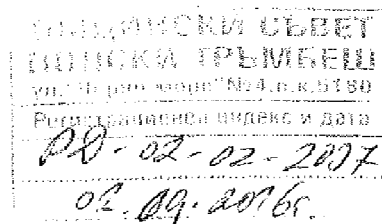 ОБЩИНСКИ СЪВЕТ
ПОЛСКИ ТРЪМБЕШ
ул. "Черно море" №4, п.к. 5180
Регистрационен индекс и дата
РД-02-02-2007
02.09.2016г.